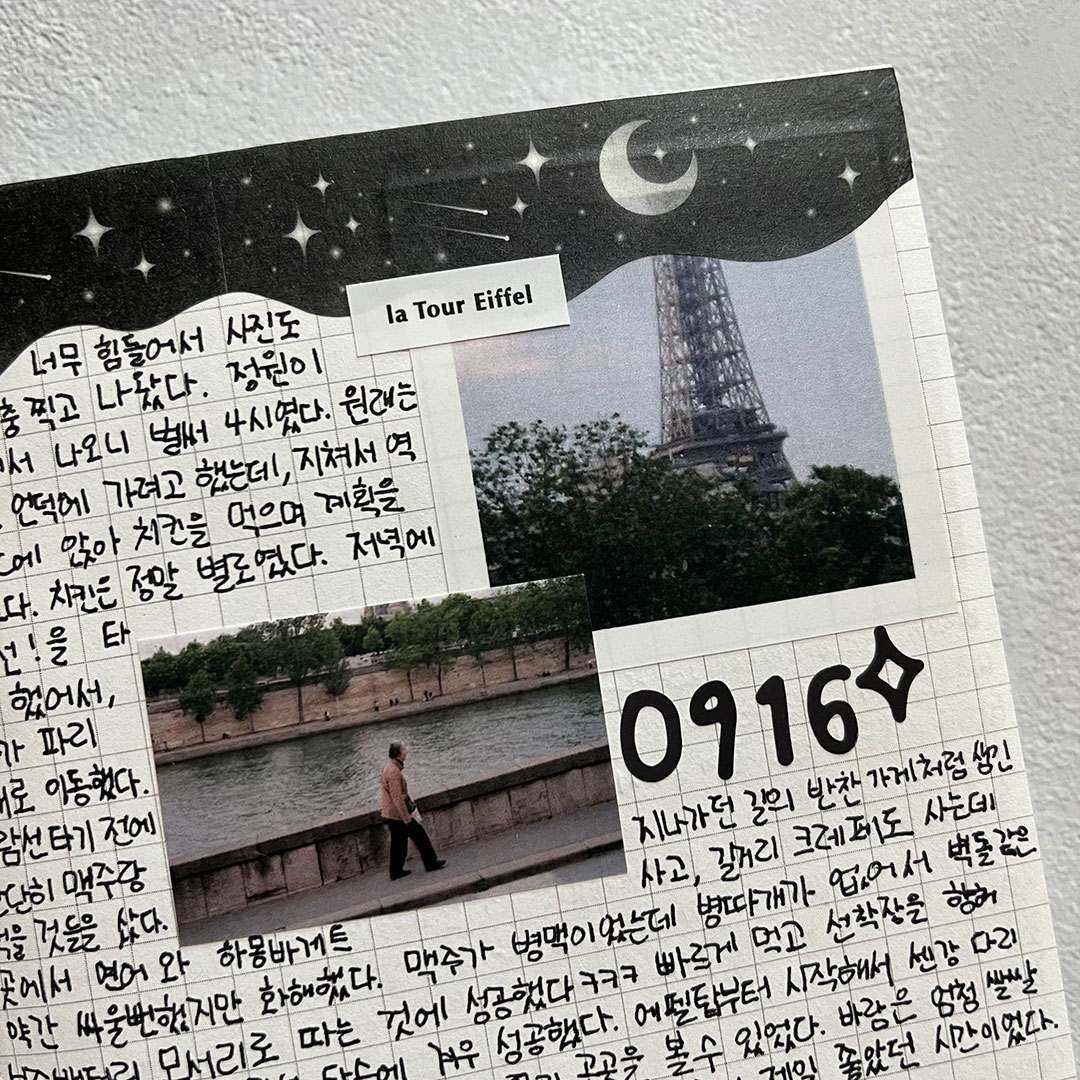 la Tour Eiffel
너무 힘들어서 사진도
찍고 나왔다. 정원이
나오니 벌써 4시였다. 원래는
언덕에 가려고 했는데, 지쳐서 역
앉아 치킨을 먹으며 계획을
치킨은 정말 별로였다. 저녁에
타
했어서,
파리
이동했다.
타기 전에
맥주랑
것들을 샀다.
0916
지나가던 길의 반찬 가게처럼 생긴
연어와 하몽바게트
사고, 길거리 크레페도 사는데
약간 싸울뻔했지만 화해했다. 맥주가 병맥이었는데 병따개가 없어서 벽돌같은
모서리로 따는 것에 성공했다ㅋㅋㅋ 빠르게 먹고 선착장을 향해
겨우 성공했다. 에펠탑부터 시작해서 센강 다리
곳곳을 볼 수 있었다. 바람은 엄청 쌀쌀
제일 좋았던 시간이었다.